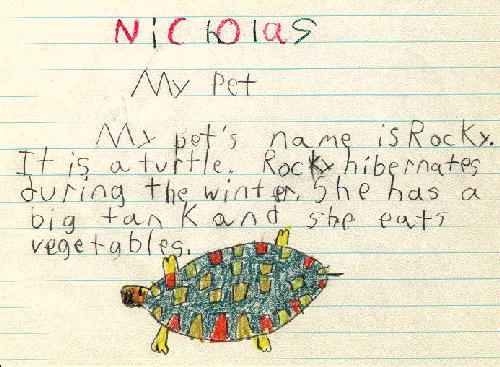 NiCholas
My Pet
My pet's name is Rocky.
It is a turtle. Rocky hibernates
during the winter. She has a
big tank and she eats
vegetables.